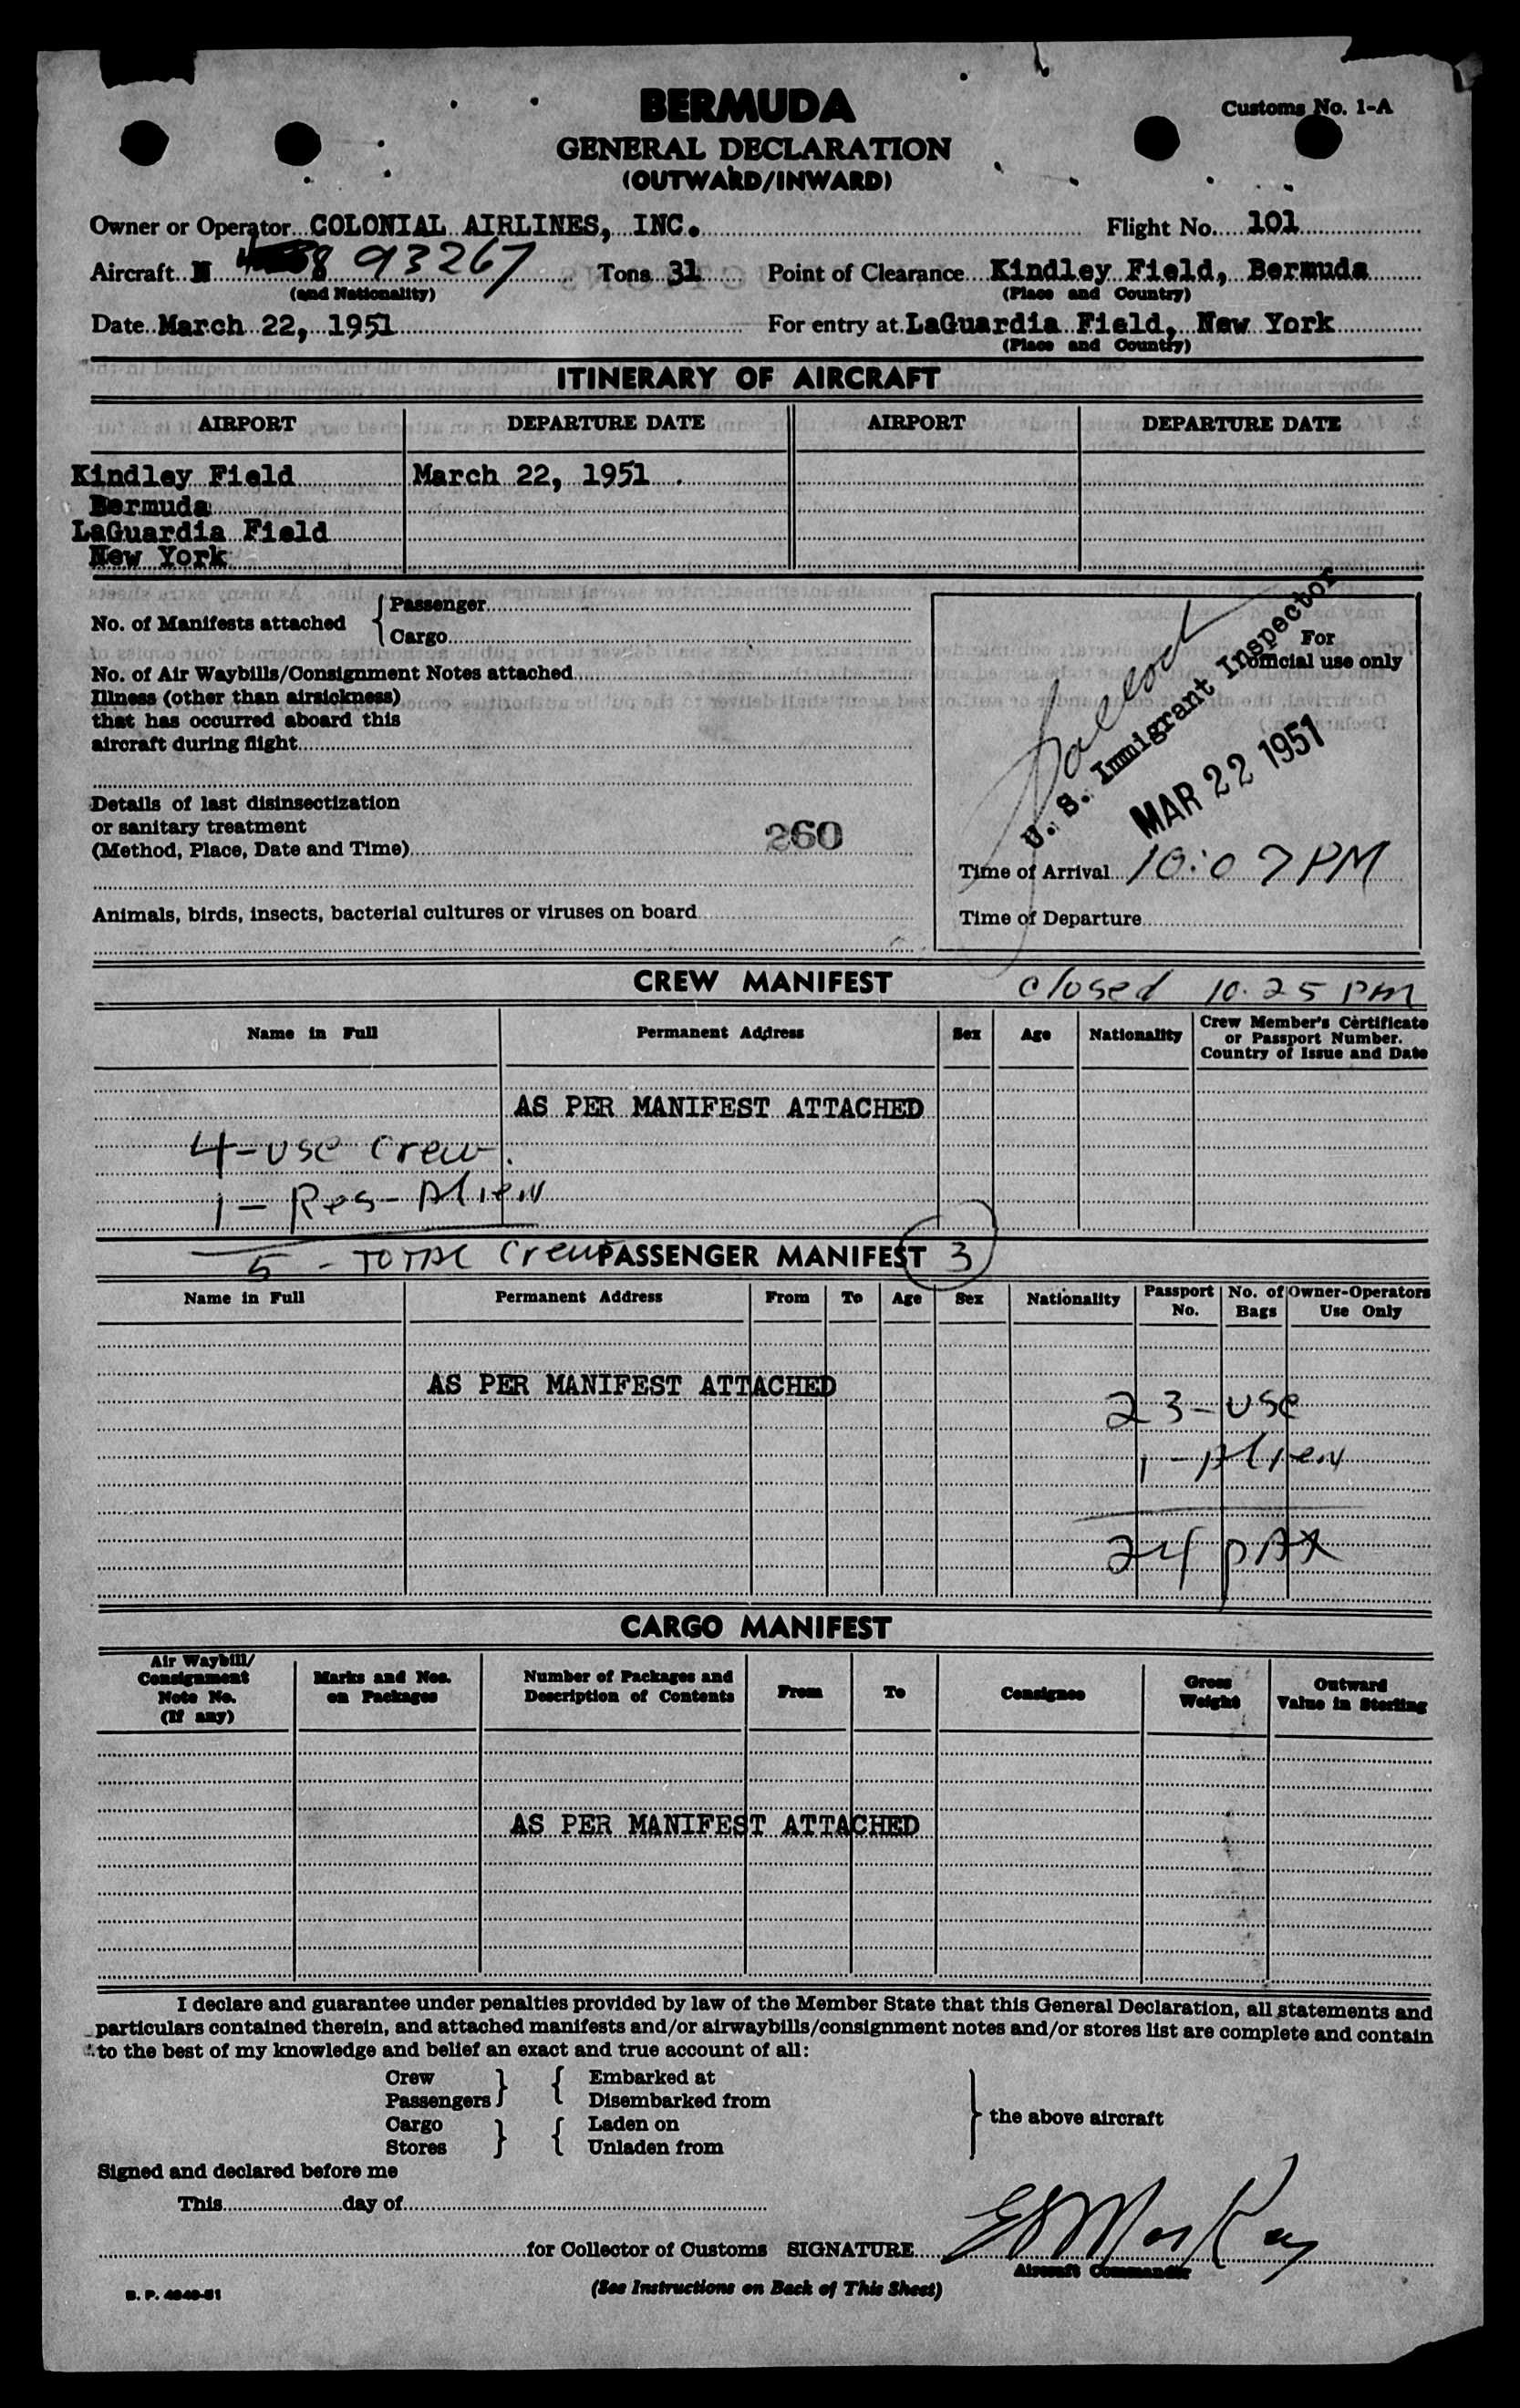 BERMUDA
Customs No. 1-A
GENERAL DECLARATION
(OUTWARD/INWARD)
Owner or Operator COLONIAL AIRLINES, INC. Flight No. 101
Aircraft N 93267 Tons 31 Point of Clearance Kindley Field, Bermuda
(and Nationality) (Place and Country)
Date March 22, 1951 For entry at LaGuardia Field, New York
(Place and Country)
ITINERARY OF AIRCRAFT
AIRPORT DEPARTURE DATE AIRPORT DEPARTURE DATE
Kindley Field March 22, 1951
Bermuda
LaGuardia Field
New York
No. of Manifests attached { Passenger
Cargo
No. of Air Waybills/Consignment Notes attached
Illness (other than airsickness)
that has occurred aboard this
aircraft during flight
Details of last disinsectization
or sanitary treatment
(Method, Place, Date and Time)
260
Animals, birds, insects, bacterial cultures or viruses on board
For
official use only
U. S. Immigrant Inspector
MAR 22 1951
Time of Arrival 10:07 PM
Time of Departure
CREW MANIFEST closed 10.25 PM
Name in Full Permanent Address Sex Age Nationality Crew Member's Certificate
or Passport Number.
Country of Issue and Date
AS PER MANIFEST ATTACHED
4-USC Crew.
1- Res-Alien
5 - TOTAL Crew
PASSENGER MANIFEST 3
Name in Full Permanent Address From To Age Sex Nationality Passport No. No. of Bags Owner-Operators Use Only
AS PER MANIFEST ATTACHED
23-USC
1-Alien
24 PAX
CARGO MANIFEST
Air Waybill/
Consignment
Note No.
(If any)
Marks and Nos.
on Packages
Number of Packages and
Description of Contents
From To Consignee
Gross
Weight
Outward
Value in Sterling
AS PER MANIFEST ATTACHED
I declare and guarantee under penalties provided by law of the Member State that this General Declaration, all statements and
particulars contained therein, and attached manifests and/or airwaybills/consignment notes and/or stores list are complete and contain
to the best of my knowledge and belief an exact and true account of all:
Crew } { Embarked at
Passengers Disembarked from
Cargo } { Laden on
Stores Unladen from
} the above aircraft
Signed and declared before me
This day of
for Collector of Customs SIGNATURE
Aircraft Commander
B. P. 4040-51
(See Instructions on Back of This Sheet)